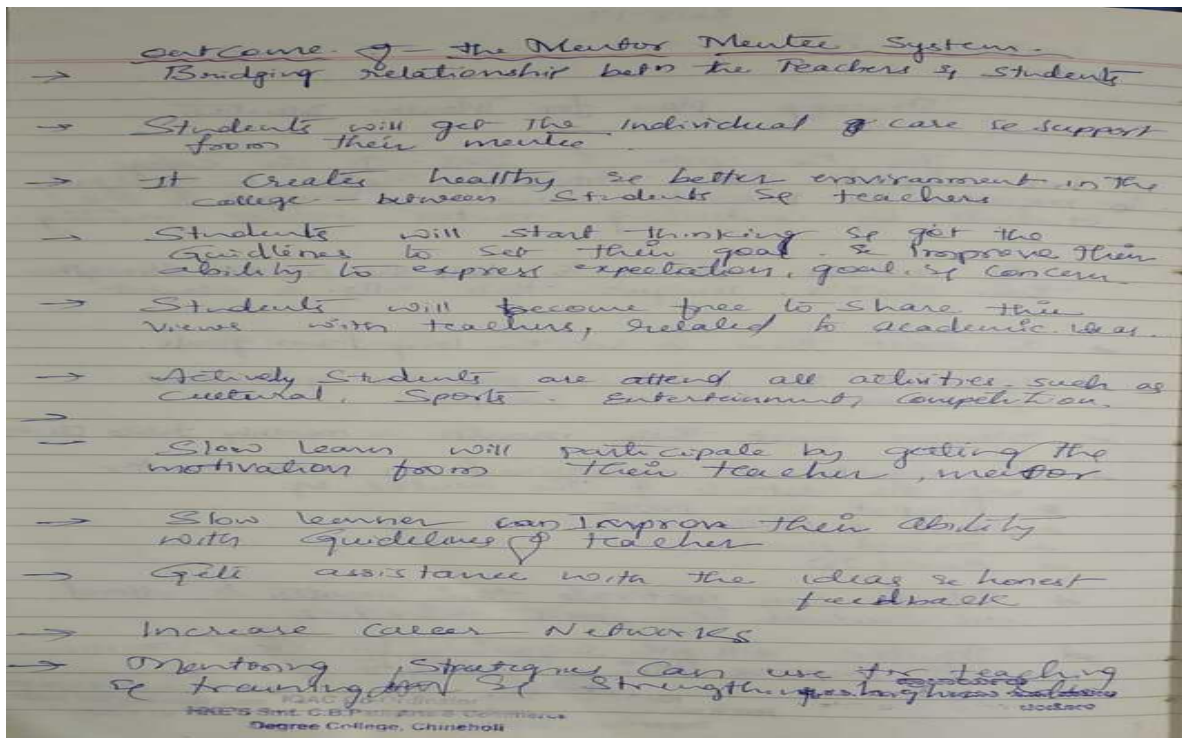 outcome of the Mentor Mentee System.
→ Bridging relationship betn the Teachers & students
→ Students will get the individual care & support
from their mentee
→ It creates healthy & better environment in the
college - between Students & teachers
→ Students will start thinking & get the
Guidlines to set their goal & Improve their
ability to express expectation, goal, & concern
→ Students will become free to share their
views with teachers, related to academic
→ Actively Students are attend all activities such as
cultural, Sports. Entertainment, Competition.
→ Slow learn will participate by getting the
motivation from their teacher, mentor
→ Slow learner can Improve their ability
with Guidelines of teacher
→ Gets assistance with the ideas & honest
feedback
→ Increase Career Networks
→ Mentoring Strategies Can use teaching
& training &
IQAC Co-ordinator
HKE'S Smt. C.B. Patil Arts & Commerce
Degree College, Chincholi